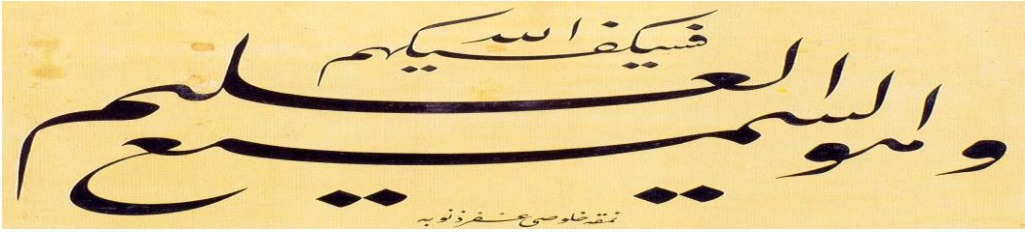 فسيكفيكهم الله
وهو السميع العليم
نمقه خلوصى غفر ذنوبه